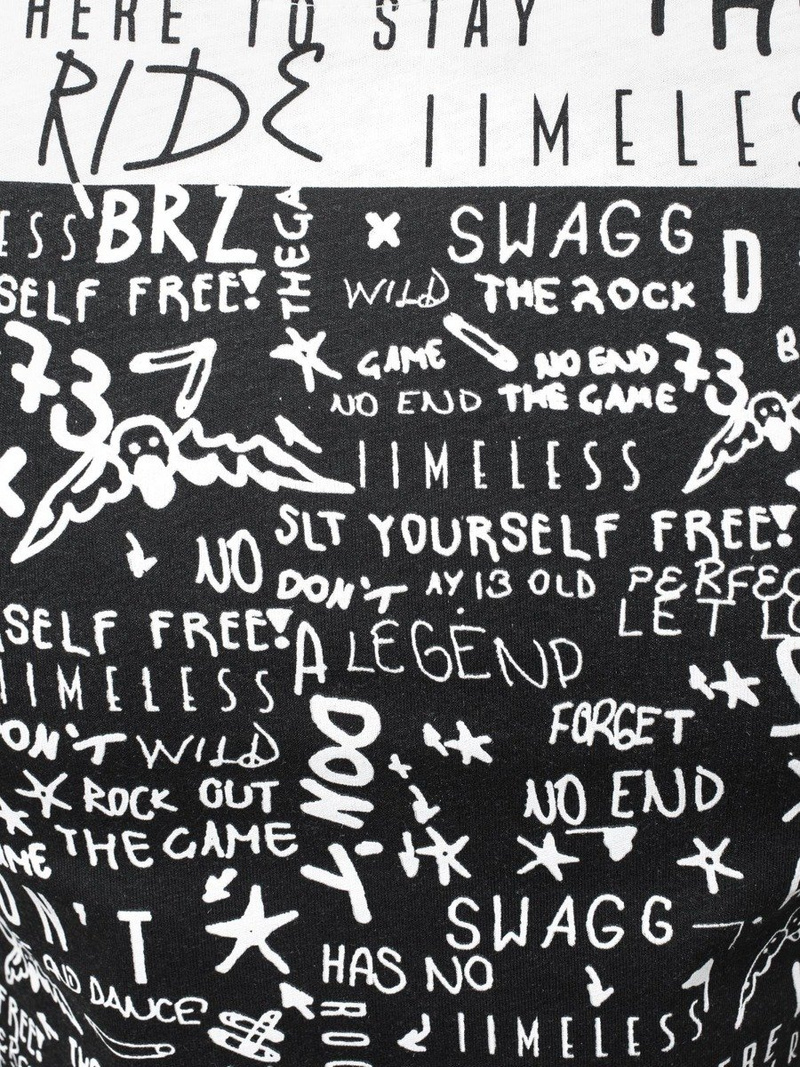 HERE TO STAY
RIDE
IIMELES
ESS BRZ
THEGA
SWAGG
D
SELF FREE!
WILD THE ROCK
73
GAME NO END 73
NO END THE GAME
IIMELESS
SLT YOURSELF FREE!
NO DON'T AY 13 OLD PERFEC
LET LO
SELF FREE!
A LEGEND
IIMELESS
DON'T
FORGET
ON'T WILD
ROCK OUT
NO END
AME THE GAME
ON'T
SWAGG
HAS NO
AND DANCE
IIMELESS
FREE!
ROC